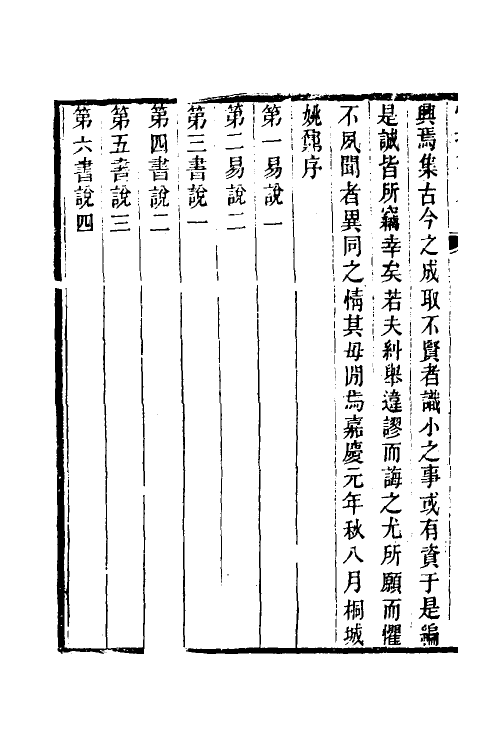 興焉集古今之成取不賢者識小之事或有資于是編
是誠皆所竊幸矣若夫糾舉違謬而誨之尤所願而懼
不夙聞者異同之情其毋閒焉嘉慶元年秋八月桐城
姚鼐序
第一易說一
第二易說二
第三書說一
第四書說二
第五書說三
第六書說四